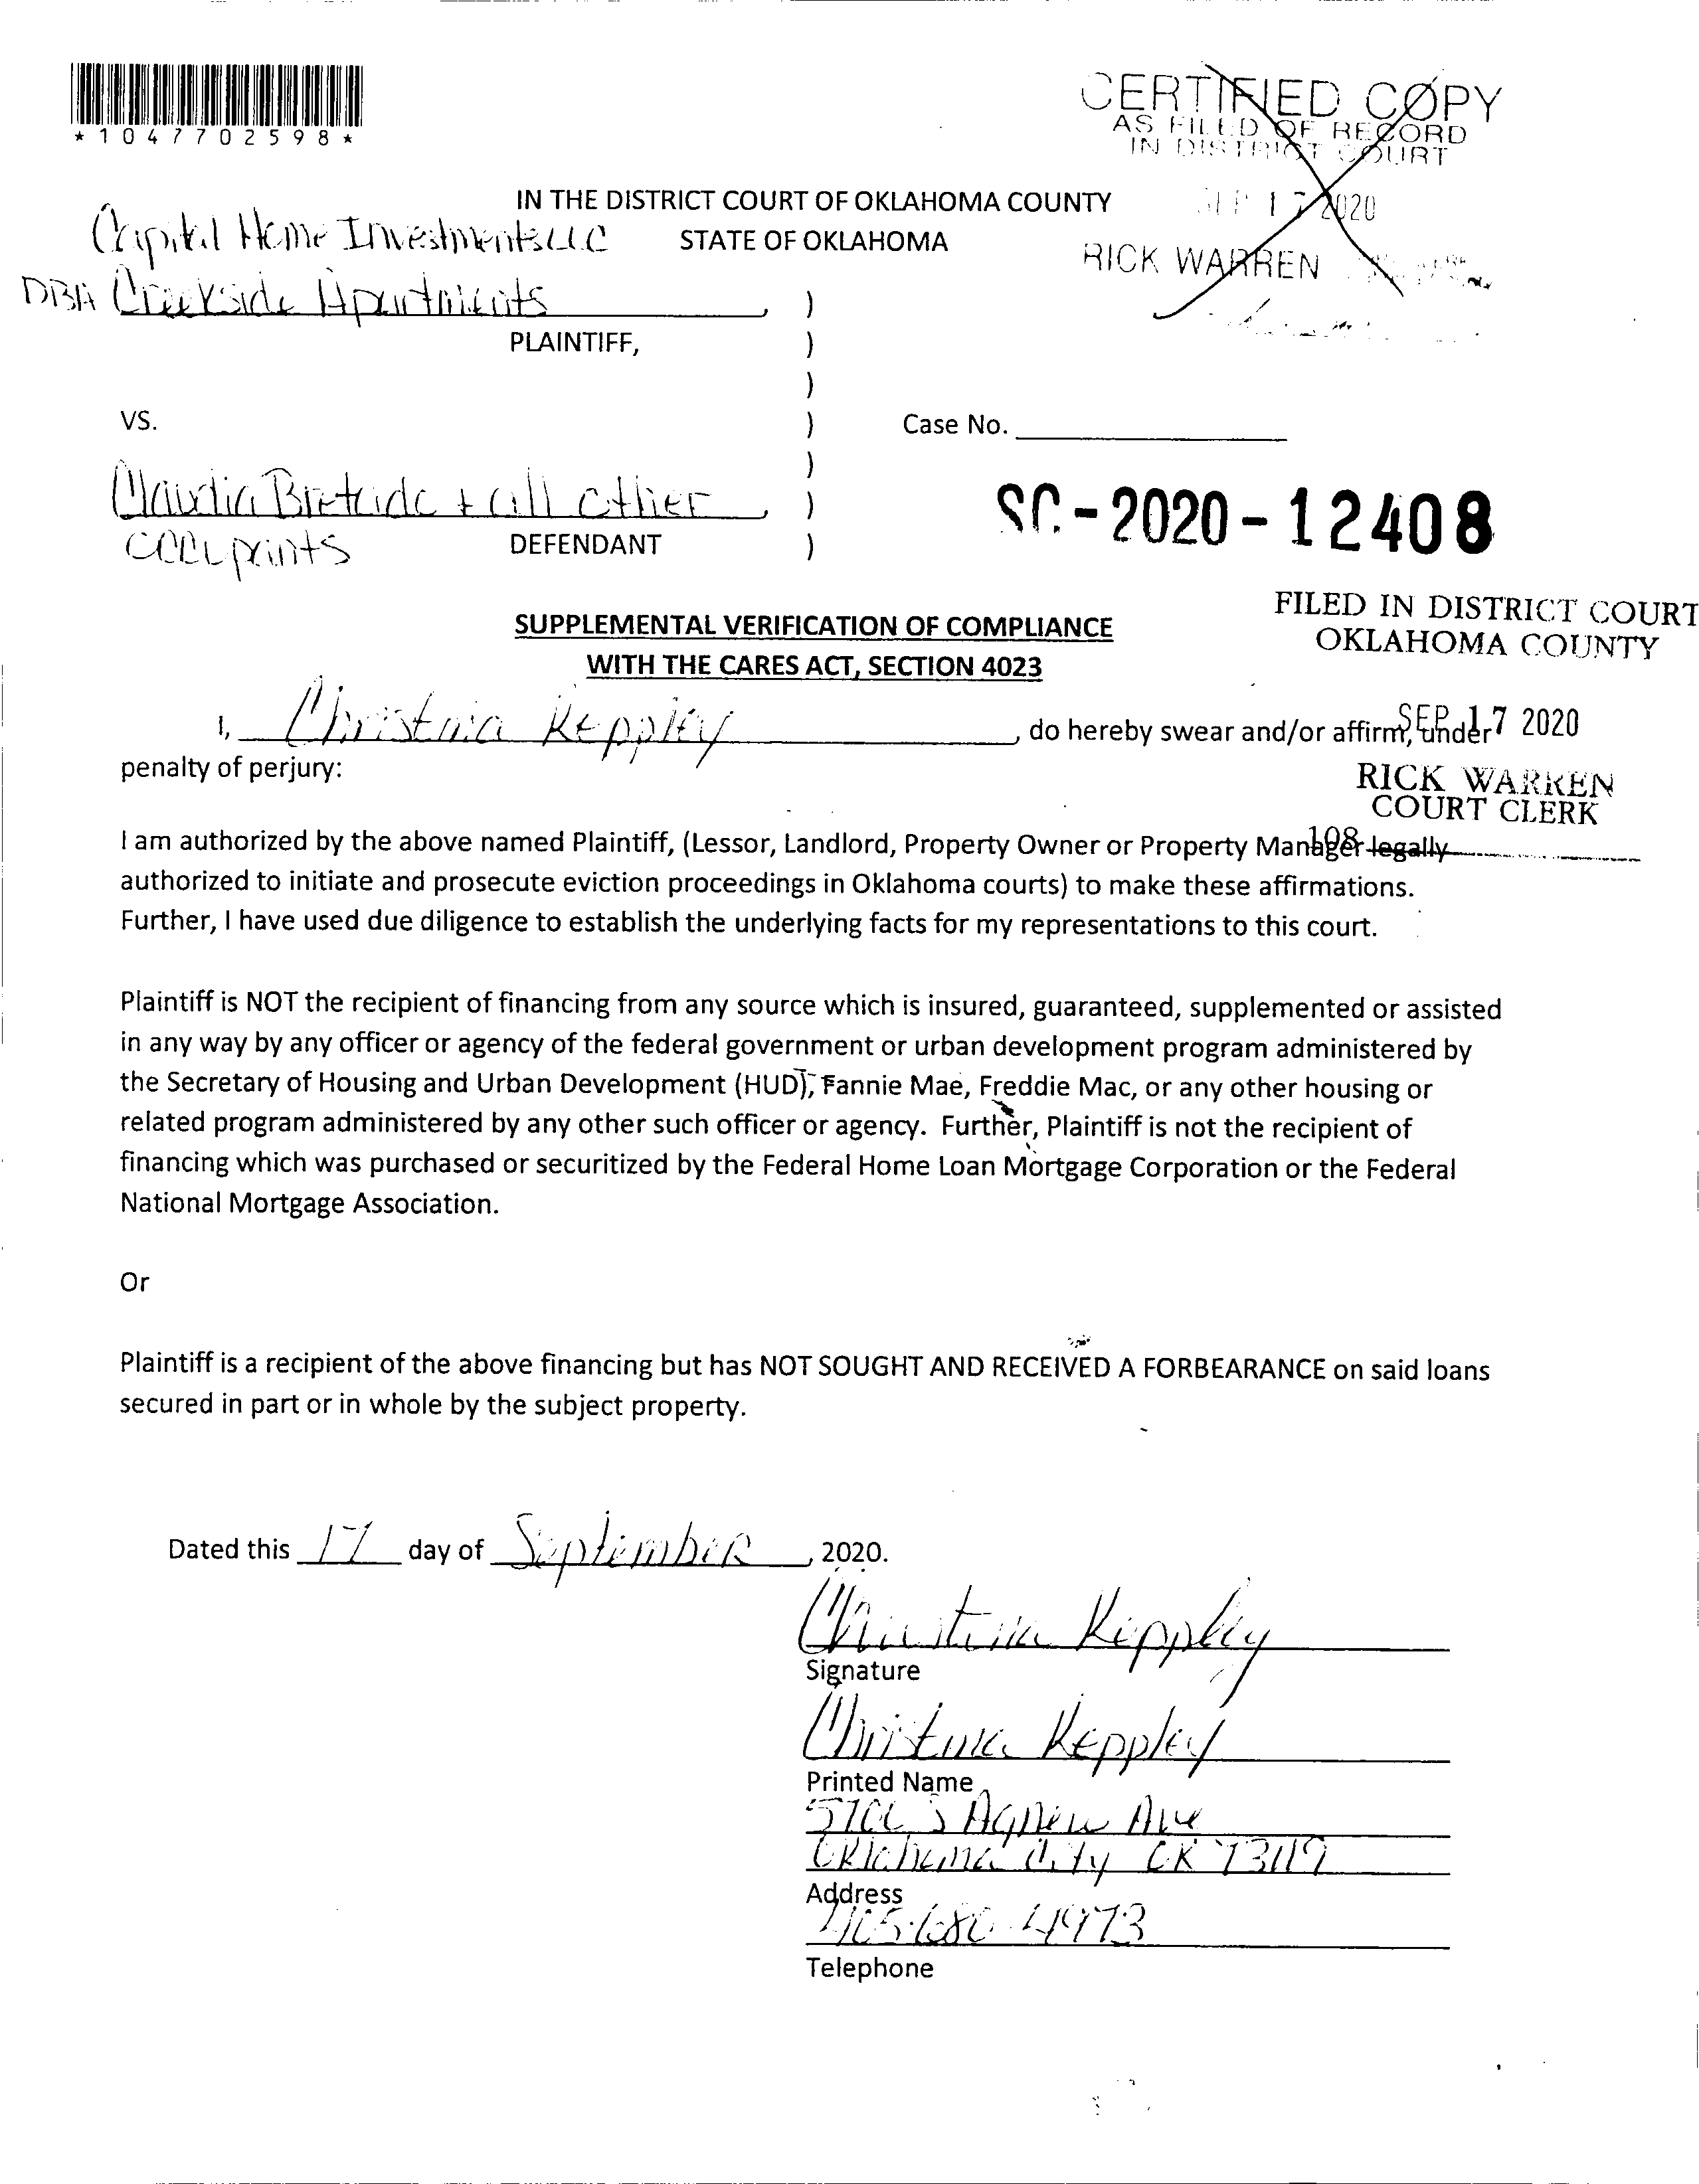 *1047702598*
CERTIFIED COPY
AS FILED OF RECORD
IN DISTRICT COURT
SEP 17 2020
RICK WARREN
IN THE DISTRICT COURT OF OKLAHOMA COUNTY
STATE OF OKLAHOMA
Capital Home Investments LLC
DBA Creekside Apartments )
PLAINTIFF, )
)
VS. ) Case No.
)
Claudia + all other )
occupants DEFENDANT )
SC-2020-12408
FILED IN DISTRICT COURT
OKLAHOMA COUNTY
SEP 17 2020
RICK WARREN
COURT CLERK
108
SUPPLEMENTAL VERIFICATION OF COMPLIANCE
WITH THE CARES ACT, SECTION 4023
I, Christina Keppley, do hereby swear and/or affirm, under
penalty of perjury:
I am authorized by the above named Plaintiff, (Lessor, Landlord, Property Owner or Property Manager legally
authorized to initiate and prosecute eviction proceedings in Oklahoma courts) to make these affirmations.
Further, I have used due diligence to establish the underlying facts for my representations to this court.
Plaintiff is NOT the recipient of financing from any source which is insured, guaranteed, supplemented or assisted
in any way by any officer or agency of the federal government or urban development program administered by
the Secretary of Housing and Urban Development (HUD), Fannie Mae, Freddie Mac, or any other housing or
related program administered by any other such officer or agency. Further, Plaintiff is not the recipient of
financing which was purchased or securitized by the Federal Home Loan Mortgage Corporation or the Federal
National Mortgage Association.
Or
Plaintiff is a recipient of the above financing but has NOT SOUGHT AND RECEIVED A FORBEARANCE on said loans
secured in part or in whole by the subject property.
Dated this 17 day of September, 2020.
Christina Keppley
Signature
Christina Keppley
Printed Name
5700 S Agnew Ave
Oklahoma City OK 73119
Address
405-680-4973
Telephone